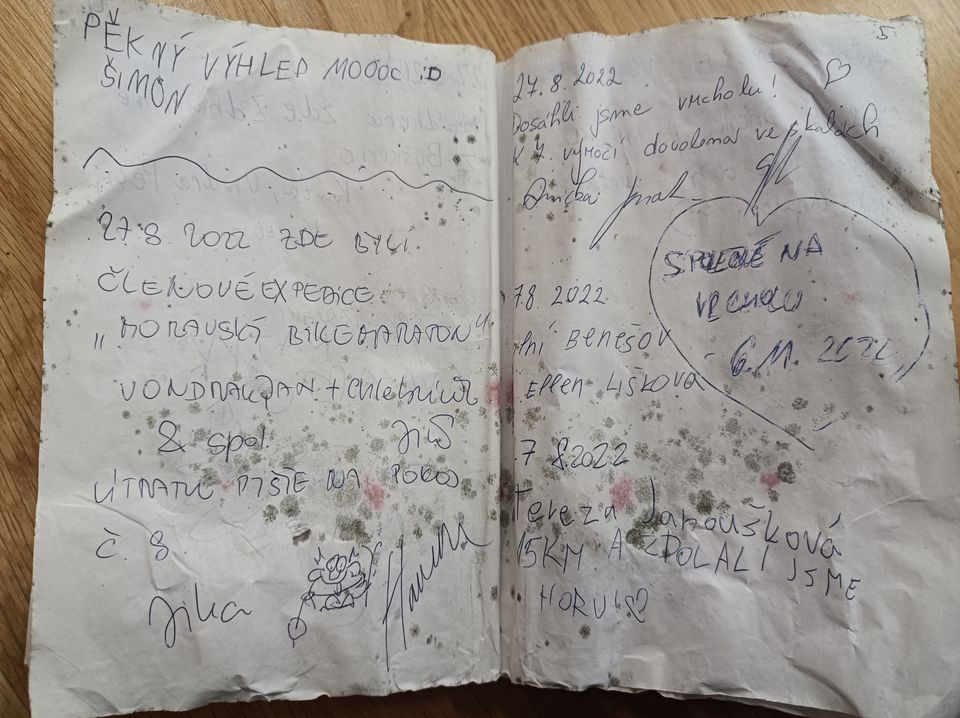 PĚKNÝ VÝHLED MOOOC :D
ŠIMON
27.8. 2022 ZDE BYLI
ČLENOVÉ EXPEDICE
„MORAVSKÝ BIKEMARATON“
VONDRA JAN +
& spol. Jiří
ÚTRATU PIŠTE NA POKOJ
Č. 8.
Jitka
5
27.8.2022
Dosáhli jsme vrcholu!
K 7. výročí dovolená ve skalách
7.8 2022
BENEŠOV
LIŠKOVÁ
7 8.2022
Tereza Janoušková
15KM A ZDOLALI JSME
HORU
SPOLEČNĚ NA
VRCHOLU
6.11. 2022